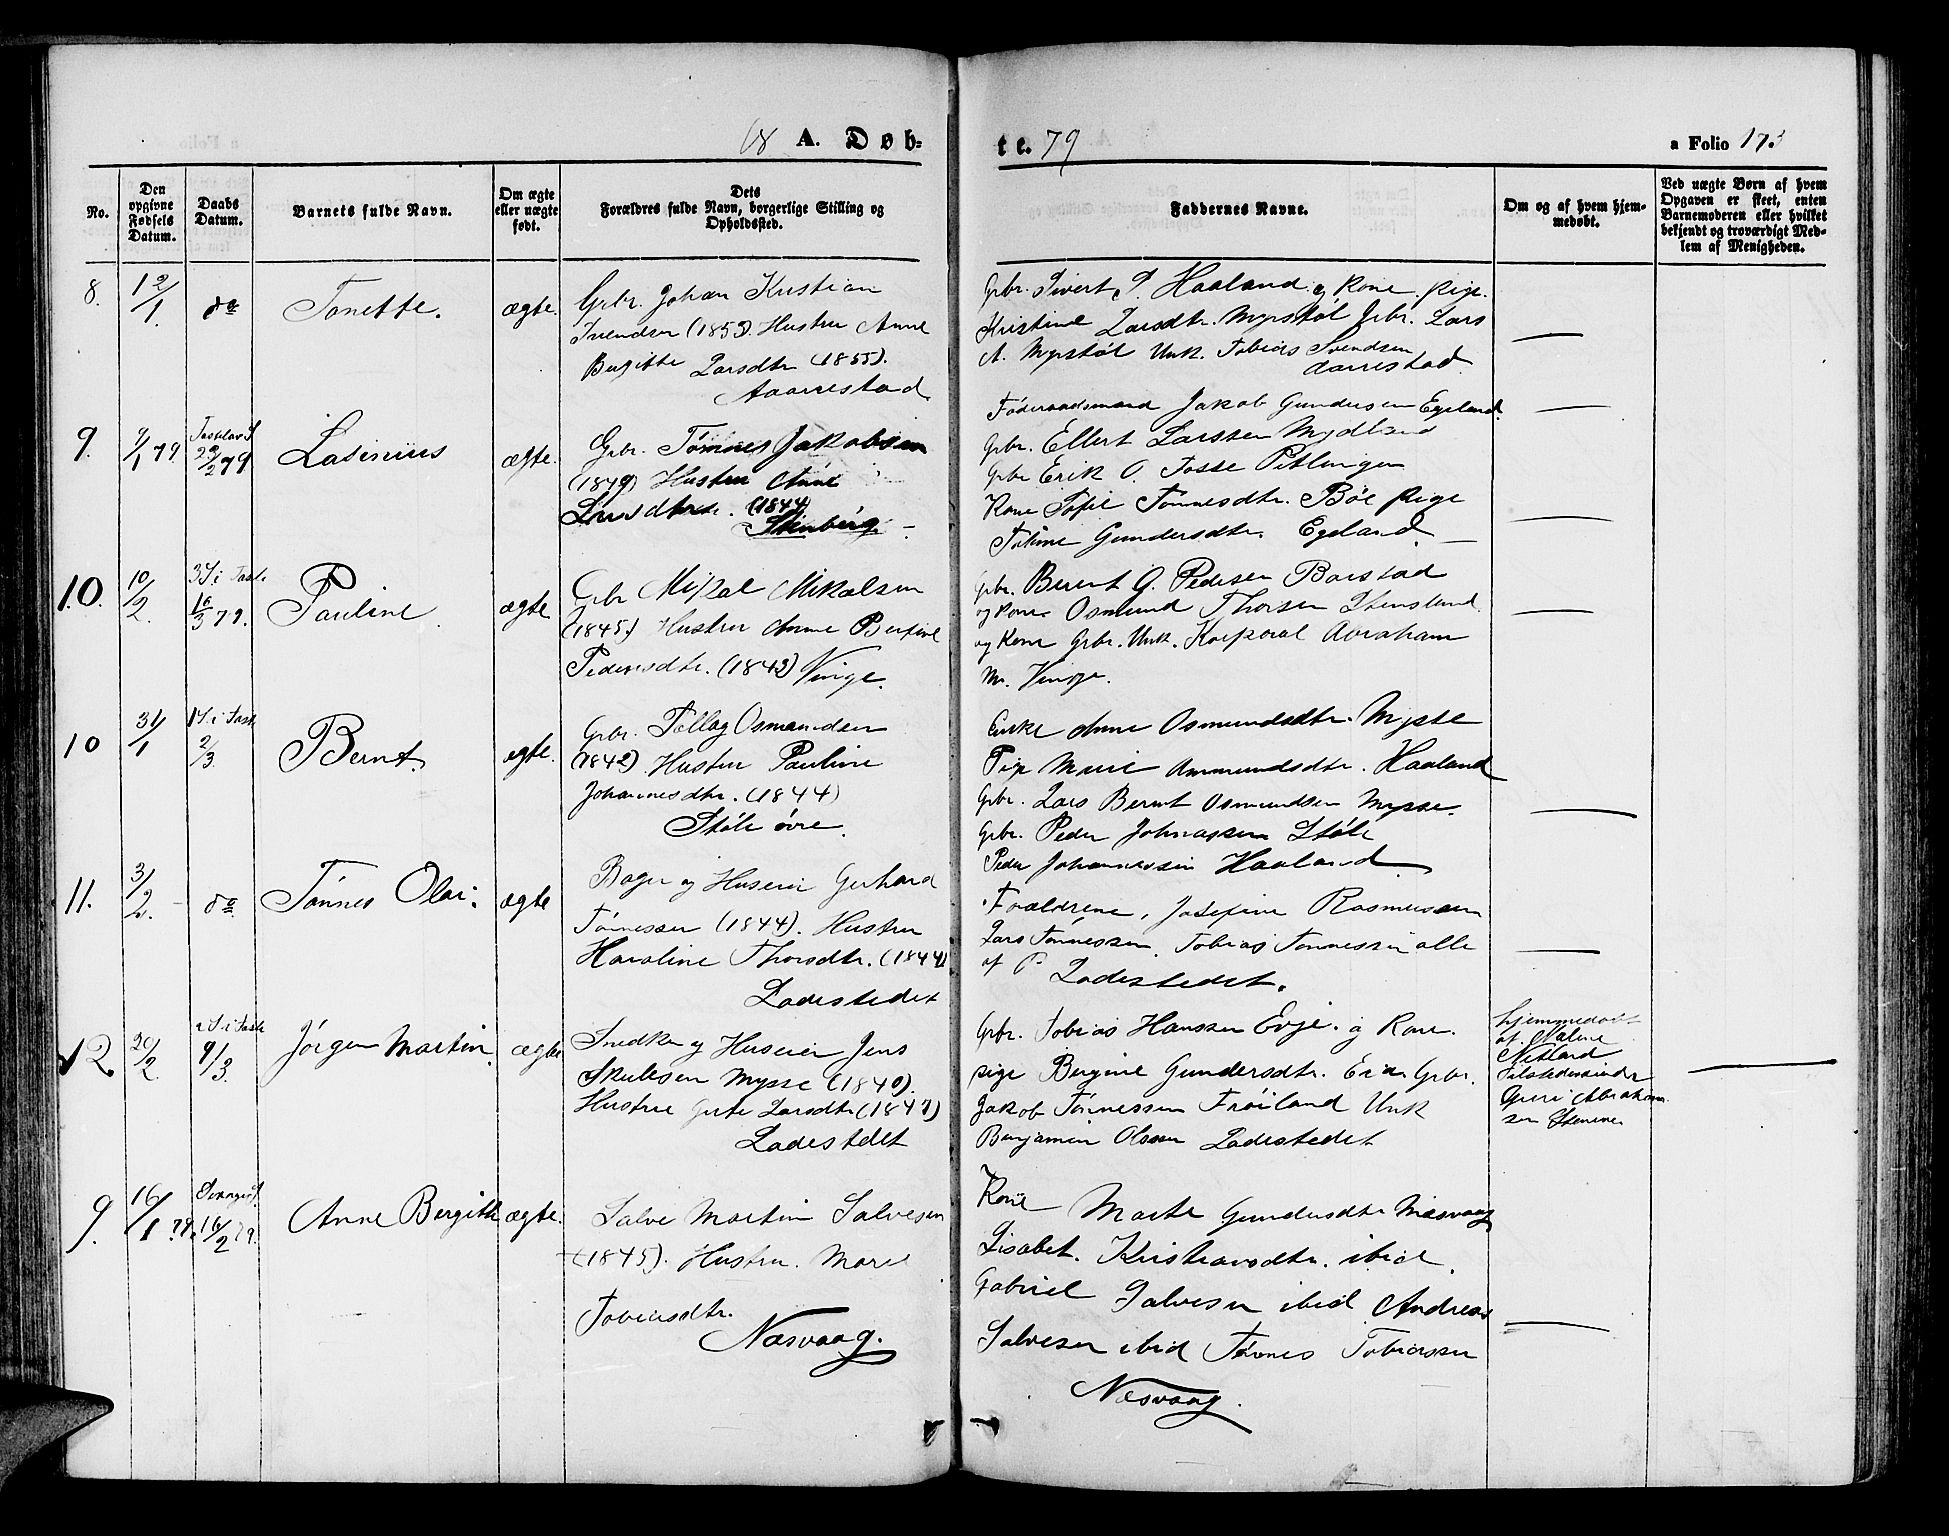 18 A. Døb-
te. 79
a Folio 173
No.
Den opgivne Fødsels Datum.
Daabs Datum.
Barnets fulde Navn.
Om ægte eller uægte født.
Dets Forældres fulde Navn, borgerlige Stilling og Opholdssted.
Faddernes Navne.
Om og af hvem hjemmedøbt.
Ved uægte Børn af hvem Opgaven er skeet, enten Barnemoderen eller hvilket bekjendt og troværdigt Medlem af Menigheden.
8. 12/1 do Tonette. ægte.
Gbr. Johan Kristian
Svendsen (1853). Hustru Anne
Bergitte Larsdtr (1855).
Aarrestad
Gbr. Sivert P. Haaland og Kone. Pige.
Kristine Larsdtr. Myrstøl Gbr. Lars
A. Myrstøl Unk. Tobias Svendsen
Aarrestad.
9. 9/1 79 Fastelav S 23/2 79 Lasinius ægte.
Gbr. Tønnes Jakobsen
(1849) Hustru Anne
Larsdtr. (1844)
Stenberg.
Føderaadsmand Jakob Gundersen Egeland.
Gbr. Ellert Larssen Mydland
Gbr Erik O. Tosse
Kone Sofie Tønnesdtr. Bøe Pige
Tomine Gundersdtr. Egeland.
10. 10/2. 3 S i Faste 16/3 79. Pauline. ægte
Gbr Mikal Mikalsen
(1845.) Hustru Anne Bergine
Pedersdtr. (1842) Vinge.
Gbr. Berent G. Pedersen Barstad
og Kone Osmund Thorsen Stensland
og Kone Gbr. Unk. Korporal Abraham
M. Vinge.
10 31/1 1 S. i Fast. 2/3. Bernt. ægte.
Gbr. Tollag Osmundsen
(1842) Hustru Pauline
Johannesdtr. (1844)
Støle øvre.
Enke Anne Osmundsdtr. Mysse
Pige Marie Ammundsdtr. Haaland
Gbr. Lars Bernt Osmundsen Mysse.
Gbr. Peder Johnassen Støle
Peder Johannessen Haaland
11. 3/2. do Tønnes Olai. ægte
Bager og Huseier Gerhard
Tønnessen (1844). Hustru
Haraline Thorsdtr. (1844)
Ladestedet
Forældrene, Josefine Rasmussen
Lars Tønnessen, Tobias Tønnessen alle
af Ladestedet.
12. 20/2 2 S i Faste 9/3. Jørgen Martin. ægte
Snedker og Huseier Jens
Skulesen Mysse (1840).
Hustru Gurte Larsdtr (1847)
Ladestedet
Gbr. Tobias Hanssen Evje. og Kone.
Pige Bergine Gundersdtr. Gbr.
Jakob Tønnessen Frøiland Unk
Benjamin Olsen Ladestedet
hjemmedøbt
af Maline
Netland
Abraham
sen
9. 16/1 79. 16/2 79. Anne Bergitte ægte.
Salve Martin Salvesen
(1845). Hustru. Marie
Tobiasdtr.
Næsvaag.
Kone Marte Gundersdtr Næsvaag
Lisabet. Kristiansdtr. ibid.
Gabriel Salvesen ibid Andreas
Salvesen ibid Tønnes Tobiassen
Næsvaag.